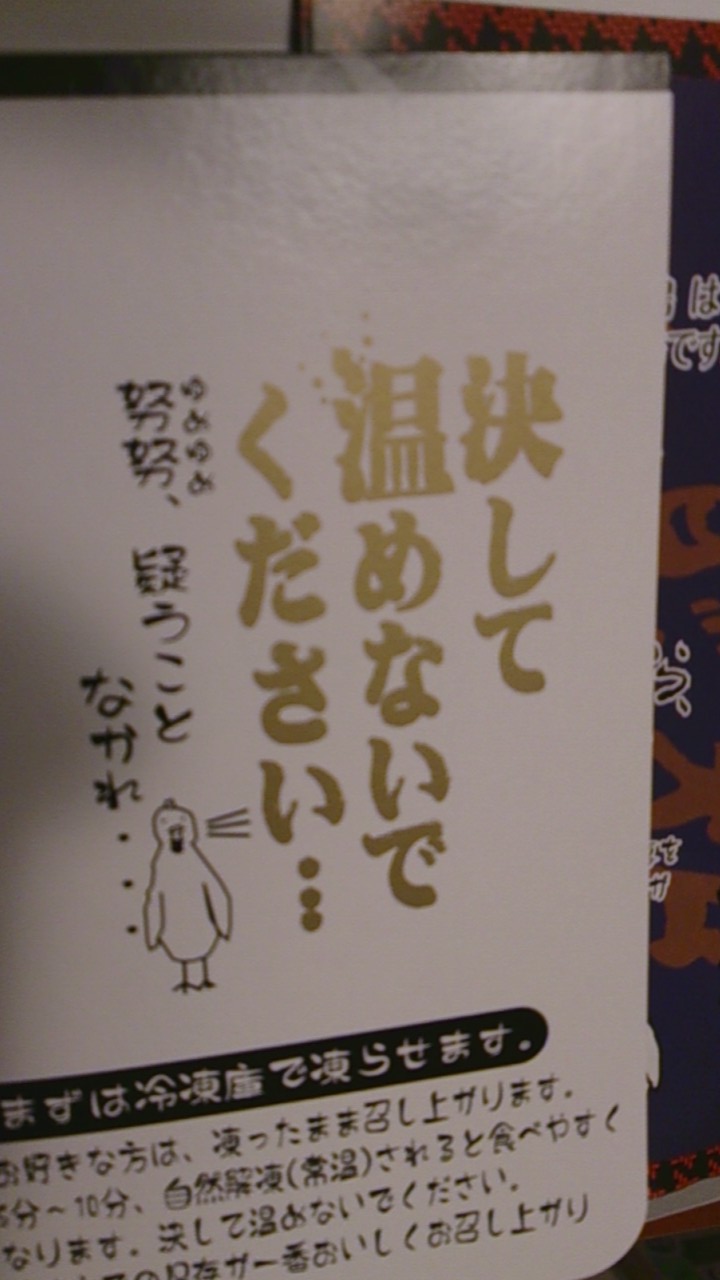 決して
温めないで
ください…
ゆめゆめ
努努、疑うこと
なかれ・・・
まずは冷凍庫で凍らせます。
お好きな方は、凍ったまま召し上がります。
5分～10分、自然解凍(常温)されると食べやすく
なります。決して温めないでください。
の保存が一番おいしくお召し上がり
は
です